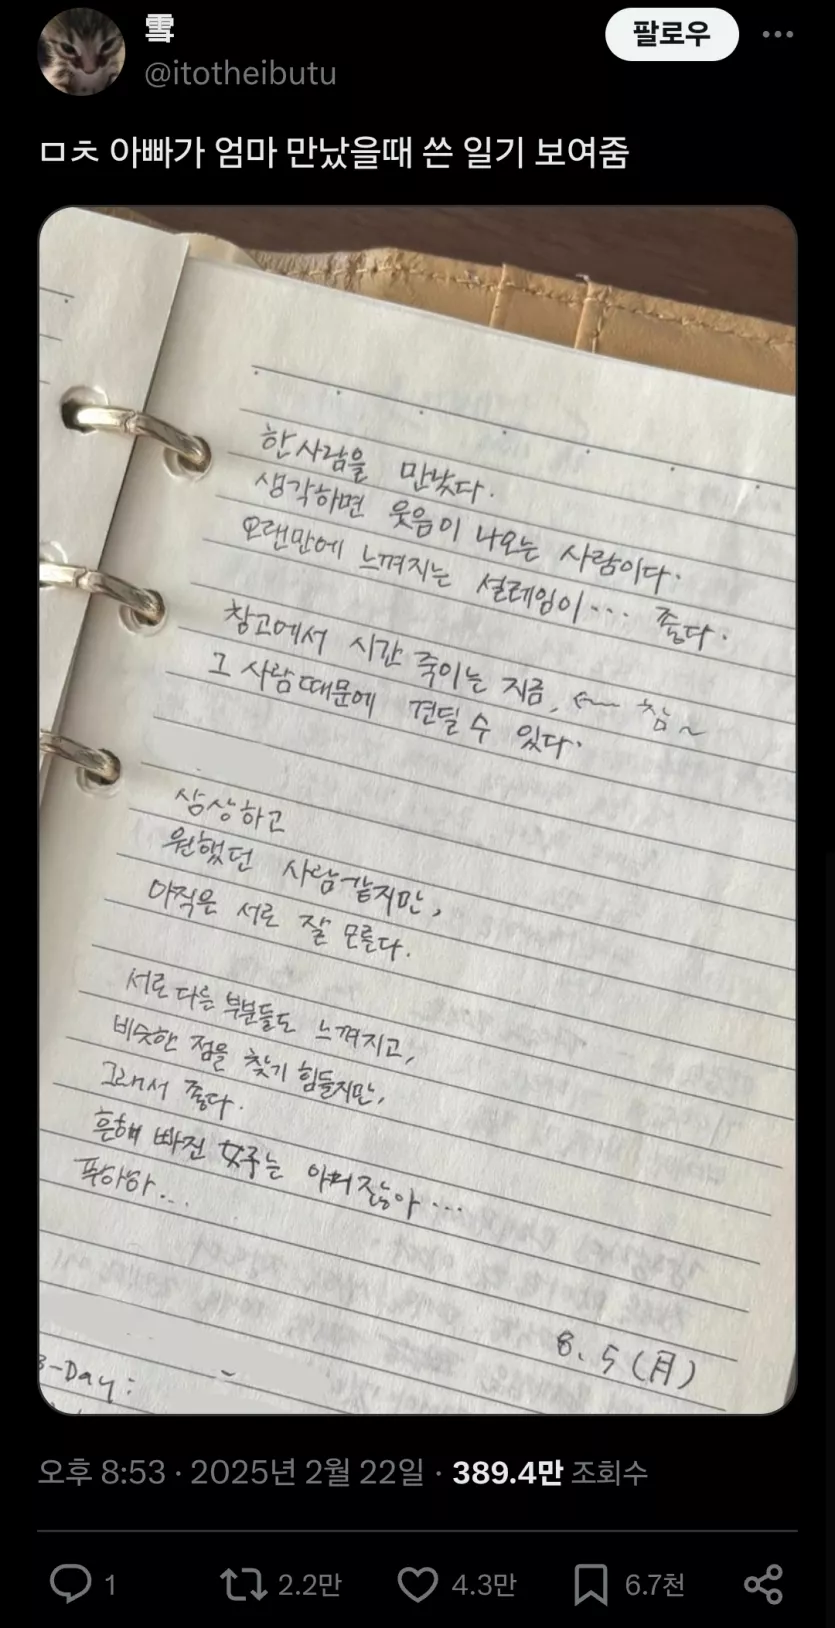 雪
팔로우
@itotheibutu
ㅁㅊ 아빠가 엄마 만났을때 쓴 일기 보여줌
한 사람을 만났다.
생각하면 웃음이 나오는 사람이다.
오랜만에 느껴지는 설레임이... 좋다.
창고에서 시간 죽이는 지금, ← 참~
그 사람때문에 견딜 수 있다.
상상하고
원했던 사람같지만,
아직은 서로 잘 모른다.
서로 다른 부분들도 느껴지고,
비슷한 점을 찾기 힘들지만,
그래서 좋다.
흔해 빠진 女子는 아니잖아...
푸하하...
8. 5 (月)
-Day:
오후 8:53 · 2025년 2월 22일 · 389.4만 조회수
1 2.2만 4.3만 6.7천